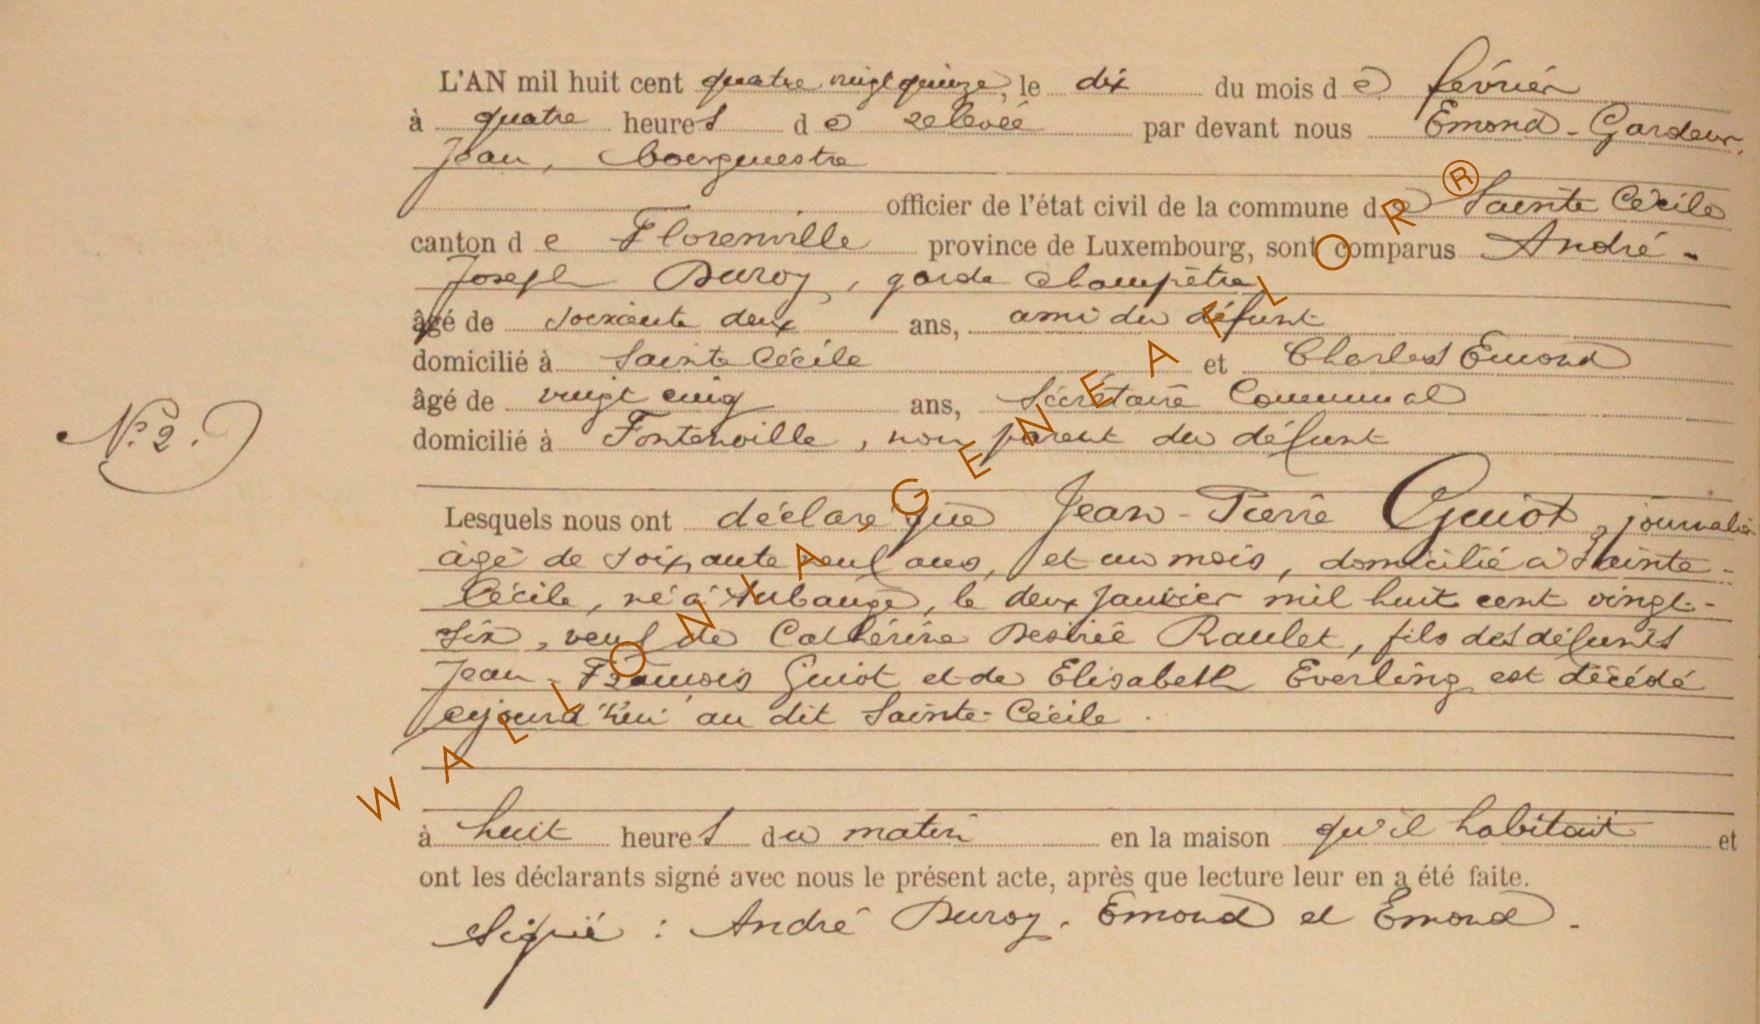 L'AN mil huit cent quatre vingt quinze, le dix du mois de février
à quatre heures de relevée par devant nous Emond-Gardeur,
Jean, bourgmestre
officier de l'état civil de la commune de Sainte Cécile
canton de Florenville province de Luxembourg, sont comparus André-
Joseph Duroy, garde champêtre
âgé de soixante deux ans, ami du défunt
domicilié à Sainte Cécile et Charles Emond
âgé de vingt cinq ans, Sécrétaire Communal
domicilié à Fontenoille, non parent du défunt
N° 2.
Lesquels nous ont déclaré que Jean-Pierre Guiot, journalier
âgé de soixante neuf ans, et un mois, domicilié à Sainte-
Cécile, né à Aubange, le deux Janvier mil huit cent vingt-
six, veuf de Cathérine Desirée Raulet, fils des défunts
Jean-François Guiot et de Elisabeth Everling est décédé
aujourd'hui au dit Sainte-Cécile.
à huit heures du matin en la maison qu'il habitait et
ont les déclarants signé avec nous le présent acte, après que lecture leur en a été faite.
Signé : André Duroy. Emond et Emond.
WALLONIA-GENEAFLOR®